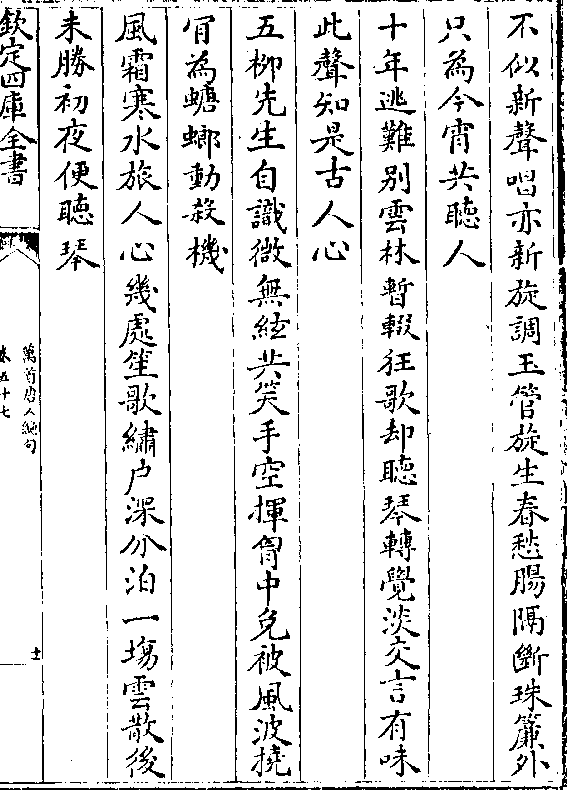 不似新聲唱亦新旋調玉管旋生春愁腸隔斷珠簾外
只為今宵共聽人
十年逃難別雲林暫輟狂歌却聽琴轉覺淡交言有味
此聲知是古人心
五栁先生自識微無絃共笑手空揮胷中免被風波撓
肎為螗螂動殺機
風霜寒水旅人心幾處笙歌繡户深分泊一塲雲散後
未勝初夜便聽琴
欽定四庫全書
萬首唐人絶句
卷五十七
十